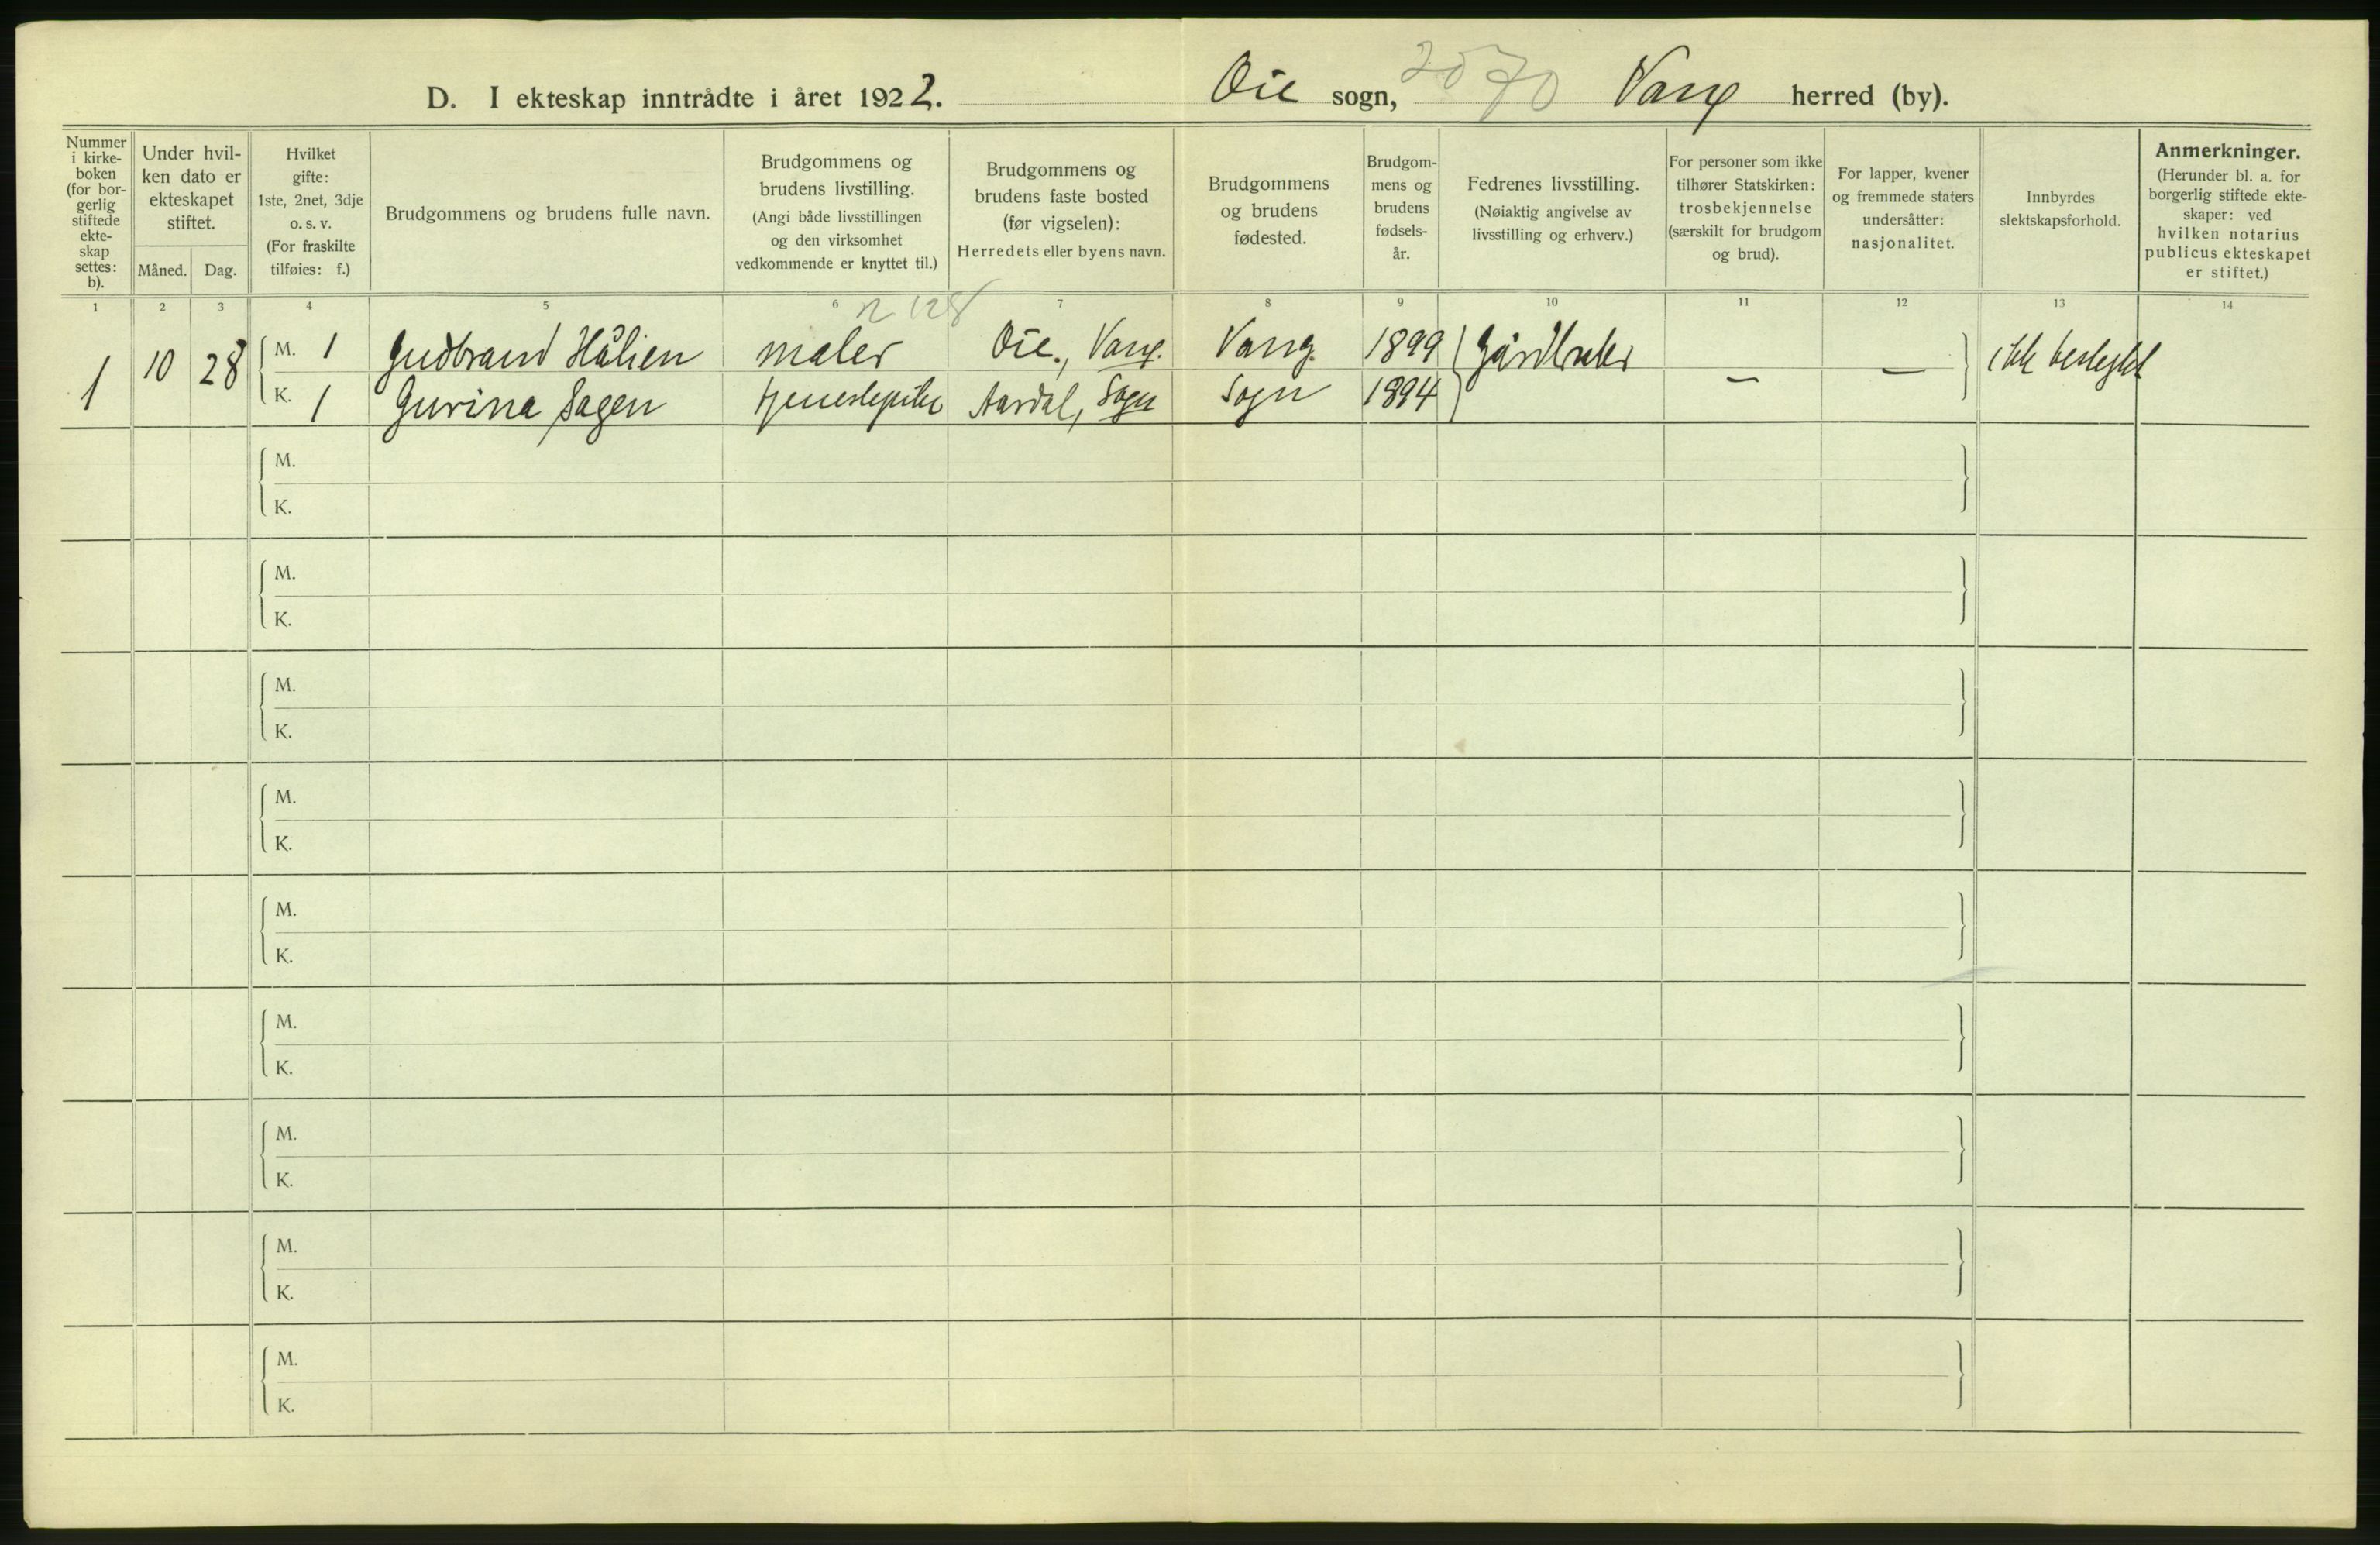 D. I ekteskap inntrådte i året 1922. Øie sogn, 2070 Vang herred (by).
Nummer i kirke-boken (for bor-gerlig stiftede ekte-skap settes: b).
Under hvil-ken dato er ekteskapet stiftet.
Måned. Dag.
Hvilket gifte: 1ste, 2net, 3dje o. s. v. (For fraskilte tilføies: f.)
Brudgommens og brudens fulle navn.
Brudgommens og brudens livstilling. (Angi både livsstillingen og den virksomhet vedkommende er knyttet til.)
Brudgommens og brudens faste bosted (før vigselen): Herredets eller byens navn.
Brudgommens og brudens fødested.
Brudgom-mens og brudens fødsels-år.
Fedrenes livsstilling. (Nøiaktig angivelse av livsstilling og erhverv.)
For personer som ikke tilhører Statskirken: trosbekjennelse (særskilt for brudgom og brud).
For lapper, kvener og fremmede staters undersåtter: nasjonalitet.
Innbyrdes slektskapsforhold.
Anmerkninger. (Herunder bl. a. for borgerlig stiftede ekte-skaper: ved hvilken notarius publicus ekteskapet er stiftet.)
1 2 3 4 5 6 7 8 9 10 11 12 13 14
1 10 28 M. 1 Gudbrand Hålien maler Øie., Vang. Vang. 1899 Gårdbruker — — ikke beslektet
K. 1 Gurina Sagen tjenestepike Aardal, Sogn Sogn 1894
M.
K.
M.
K.
M.
K.
M.
K.
M.
K.
M.
K.
M.
K.
M.
K.
M.
K.